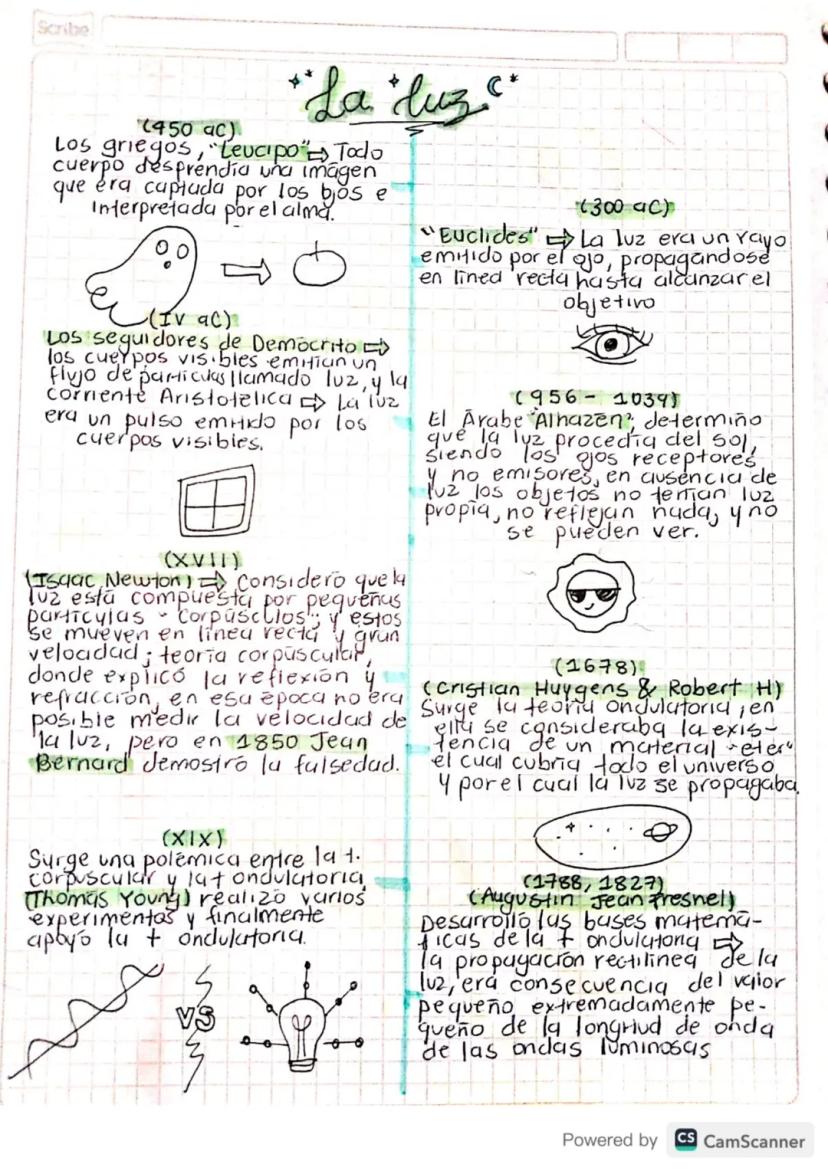 Scribe
La luz
(450 aC)
Los griegos, "Leucipo" ⇨ Todo
cuerpo desprendia una imagen
que era captada por los ojos e
interpretada por el alma.
(IV aC)
Los seguidores de Demócrito ⇨
los cuerpos visibles emitian un
flujo de particulas llamado luz, y la
corriente Aristotelica ⇨ La luz
era un pulso emitido por los
cuerpos visibles.
(XVII)
(Isaac Newton) ⇨ Consideró que la
luz está compuesta por pequeñas
partículas - corpúsculos"; y estos
se mueven en linea recta y gran
velocidad; teoria corpúscular,
donde explicó la reflexión y
refracción, en esa época no era
posible medir la velocidad de
la luz, pero en 1850 Jean
Bernard demostró la falsedad.
(XIX)
Surge una polémica entre la t.
corpuscular y la t ondulatoria,
(Thomas Young) realizó varios
experimentos y finalmente
apoyo la t ondulatoria.
VS
(300 aC)
"Euclides" ⇨ La luz era un rayo
emitido por el ojo, propagándose
en linea recta hasta alcanzar el
objetivo
(956 - 1039)
El Árabe "Alhazen", determiño
que la luz procedia del sol,
siendo los ojos receptores
y no emisores, en ausencia de
luz los objetos no tenian luz
propia, no reflejan nada, y no
se pueden ver.
(1678)
(Cristian Huygens & Robert H)
Surge la teoria ondulatoria, en
ella se consideraba la exis-
tencia de un material "eter"
el cual cubria todo el universo
y por el cual la luz se propagaba.
(1788, 1827)
(Augustin Jean Fresnel)
Desarrolló las bases matemá-
ticas de la t ondulatoria ⇨
la propagación rectilinea de la
luz, era consecuencia del valor
pequeño extremadamente pe-
queño de la longitud de onda
de las ondas luminosas
Powered by CS CamScanner